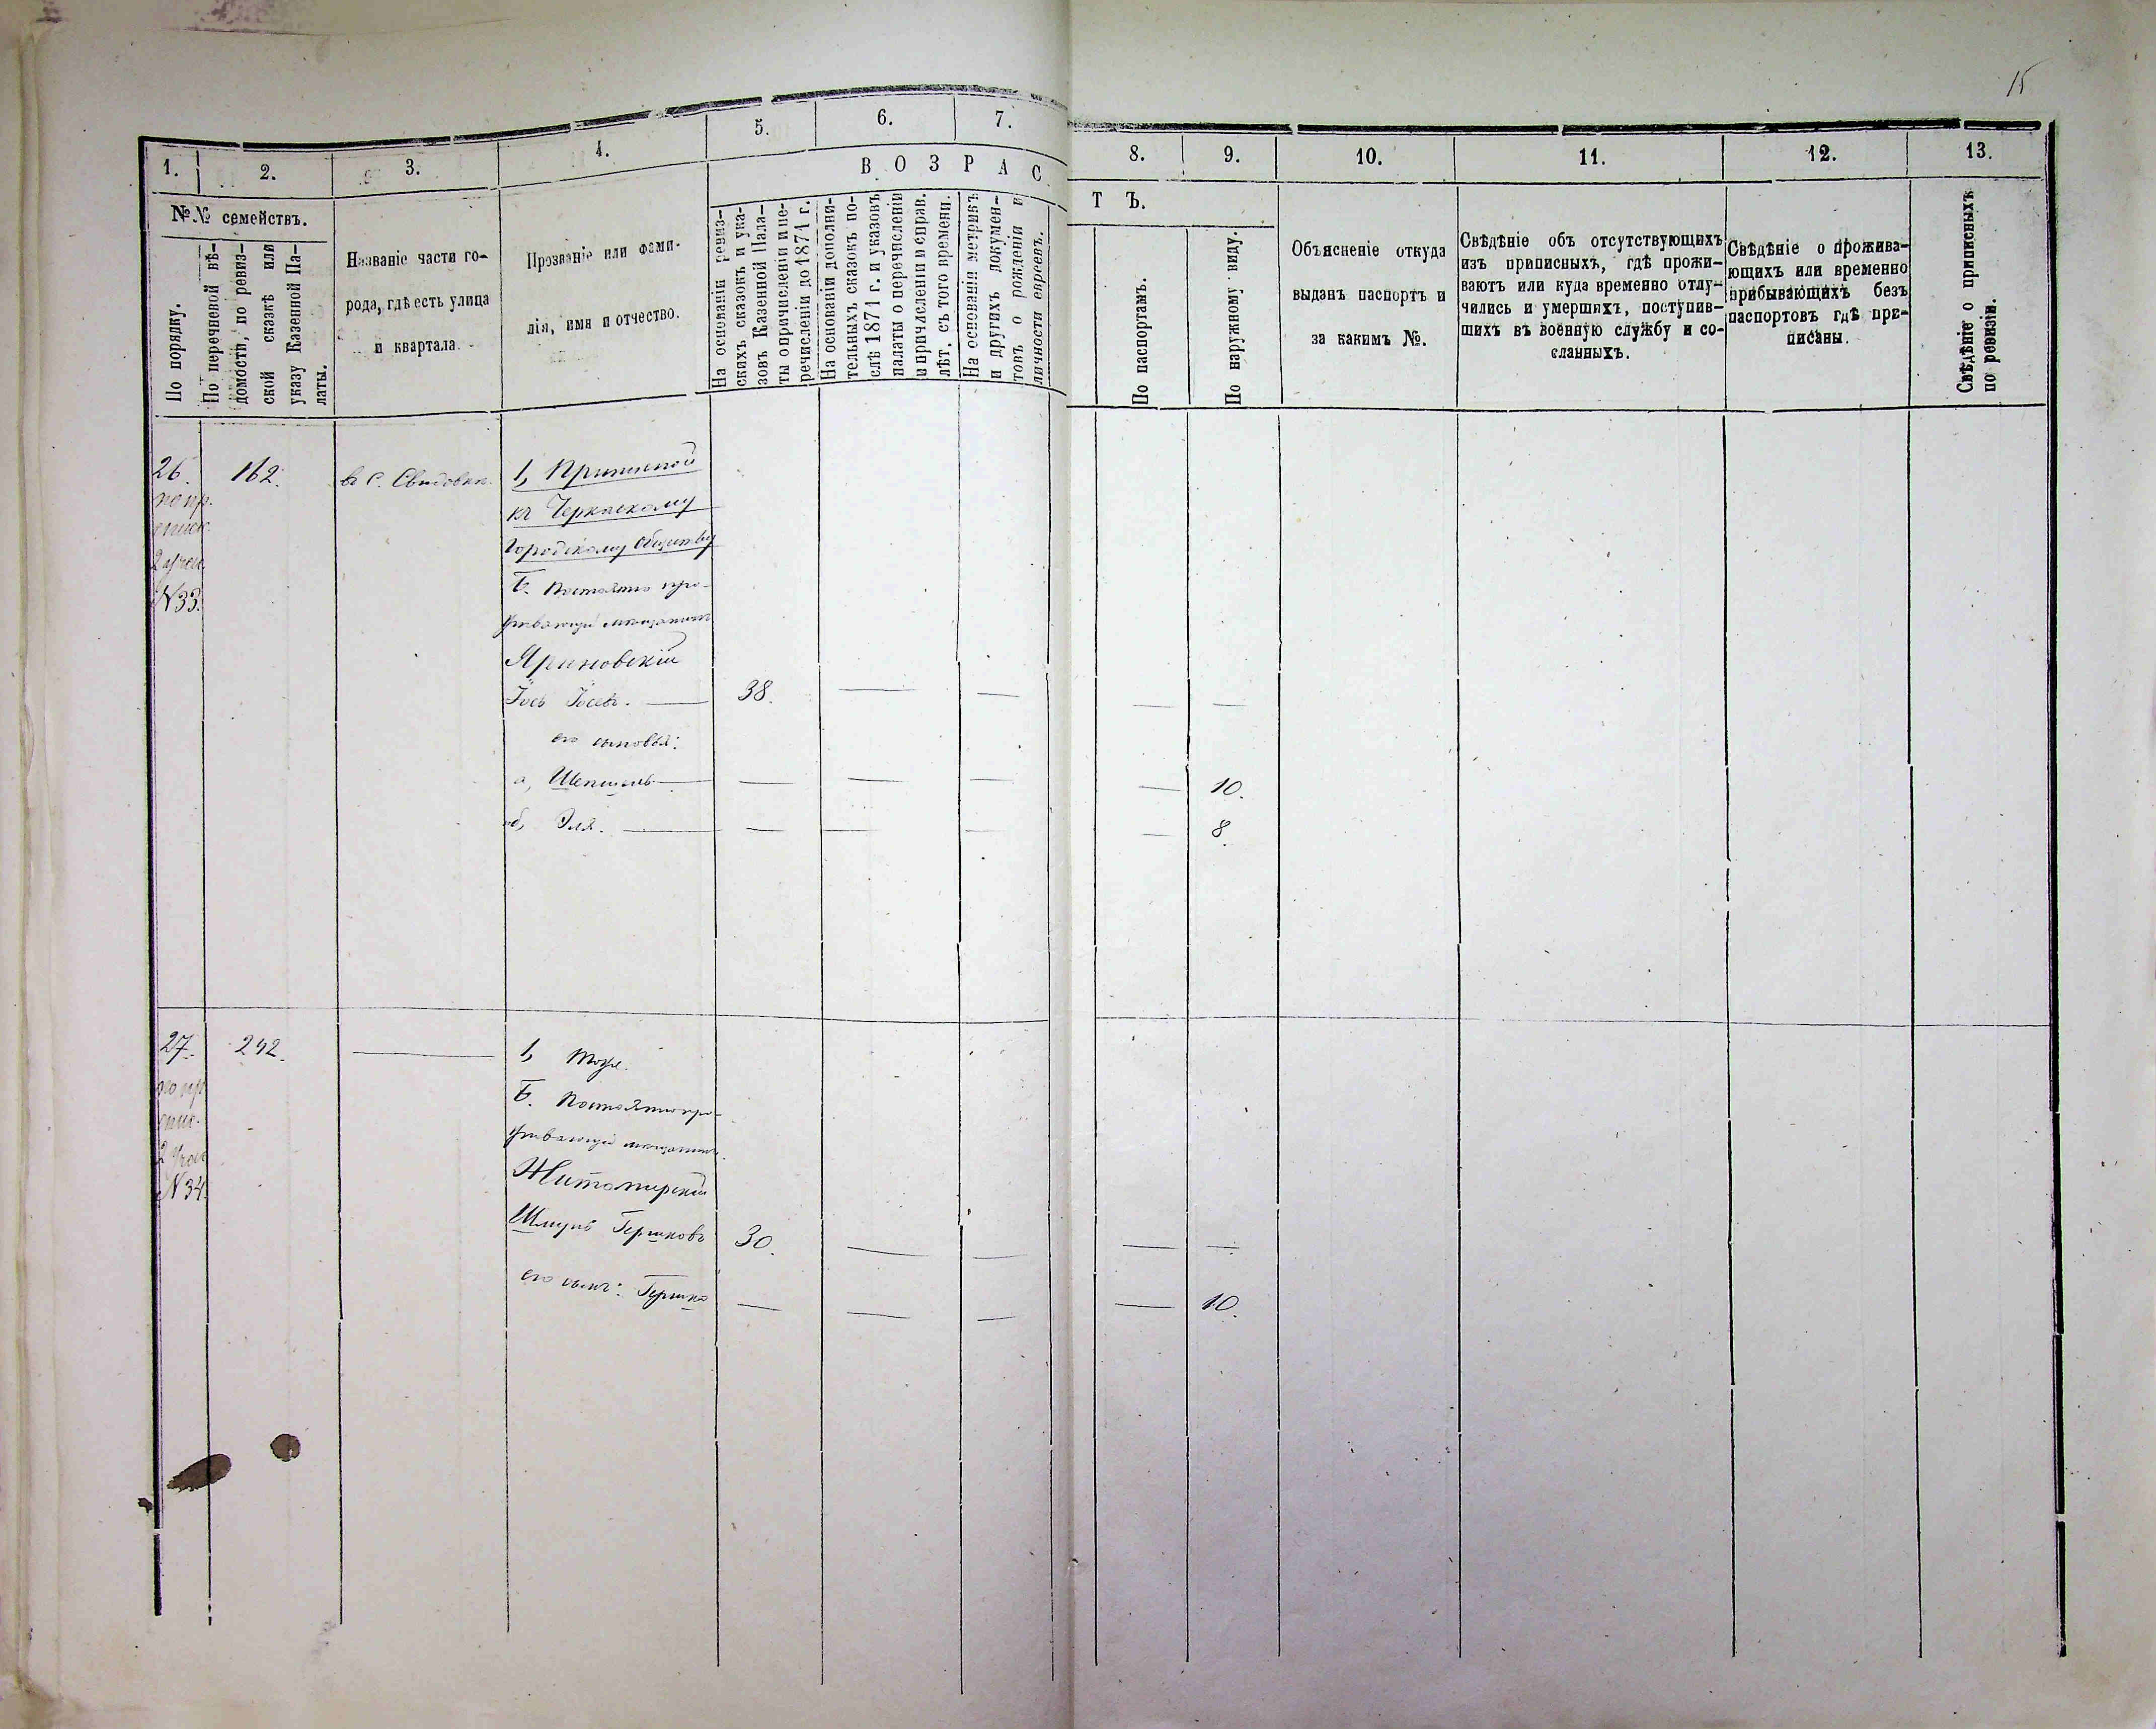 15
1. 2. 3. 4. 5. 6. 7. 8. 9. 10. 11. 12. 13.
№№ семействъ.
По порядку.
По перечневой вѣ-
домости, по ревиз-
ской сказкѣ или
указу Казенной Па-
латы.
Названіе части го-
рода, гдѣ есть улица
и квартала.
Прозваніе или фами-
лія, имя и отчество.
ВОЗРАСТЪ.
На основаніи ревиз-
скихъ сказокъ и ука-
зовъ Казенной Пала-
ты о причисленіи и пе-
речисленіи до 1871 г.
На основаніи дополни-
тельныхъ сказокъ по-
слѣ 1871 г. и указовъ
палаты о перечисленіи
и причисленіи и справ.
лѣт. съ того времени.
На основаніи метрикъ
и другихъ докумен-
товъ о рожденіи и
личности евреевъ.
По паспортамъ.
По наружному виду.
Объясненіе откуда
выданъ паспортъ и
за какимъ №.
Свѣдѣніе объ отсутствующихъ
изъ приписныхъ, гдѣ прожи-
ваютъ или куда временно отлу-
чились и умершихъ, поступив-
шихъ въ военную службу и со-
сланныхъ.
Свѣдѣніе о прожива-
ющихъ или временно
прибывающихъ безъ
паспортовъ гдѣ при-
писаны.
Свѣдѣніе о приписныхъ
по ревизіи.
26. 162. въ с. Свидовкѣ. 1, Приписной
по пр. къ Черкаскому
списк. Городскому Обществу
2 участ. Б. Постоянно про-
N 33. живающій мѣщанинъ
Яриновскій
Іось Іосевъ. — 38. — — — —
его сыновья:
а, Шепшель — — — — — 10.
б, Эля. — — — — — 8.
27. 242. — 1, тоже.
по пр. Б. Постоянно про-
спис. живающій мѣщанинъ.
2 участ Житомирскій
N 34. Шмуль Гершковъ 30. — — — —
его сынъ: Гершко — — — — 10.